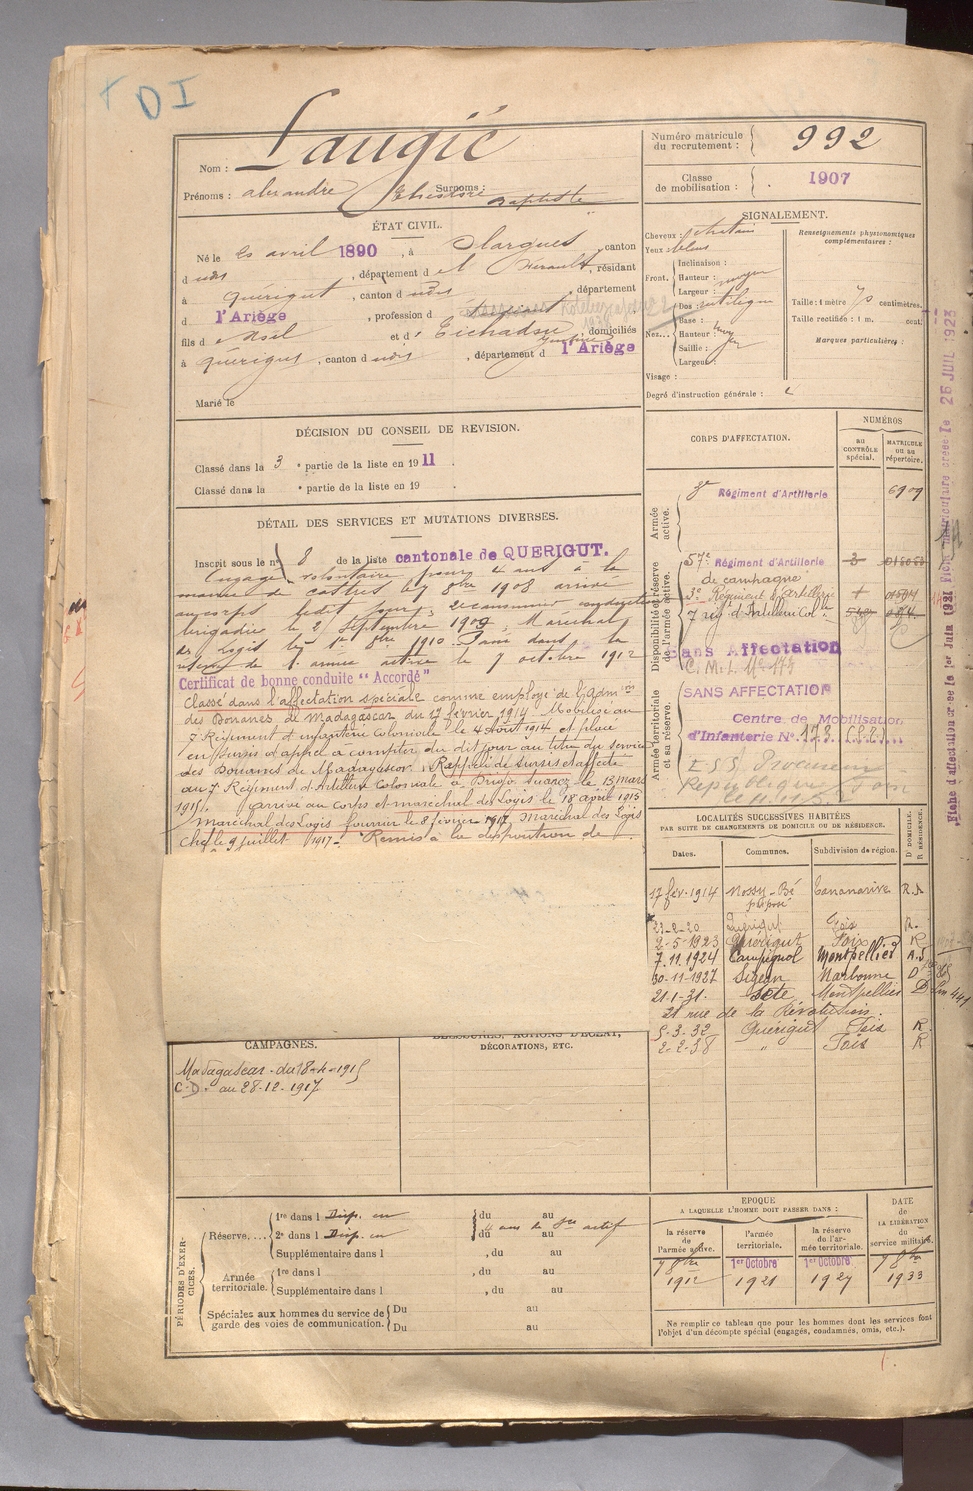 DI
Nom : Laugié
Prénoms : alexandre Surnoms : Baptiste
Numéro matricule du recrutement : 992
Classe de mobilisation : 1907
ÉTAT CIVIL.
Né le 20 avril 1890, à Olargues, canton
d udt, département de l'Hérault, résidant
à Quérigut, canton d udt, département
d l'Ariège, profession d
fils d et d , domiciliés
à Quérigut, canton d udt, département d l'Ariège
Marié le
SIGNALEMENT.
Cheveux : chatain
Yeux bleus
Front. Inclinaison :
Hauteur : moyen
Largeur :
Nez... Dos : rectiligne
Base :
Hauteur : moyen
Saillie :
Largeur :
Visage :
Degré d'instruction générale :
Renseignements physionomiques complémentaires :
Taille : 1 mètre 70 centimètres.
Taille rectifiée : 1 m. cent.
Marques particulières :
DÉCISION DU CONSEIL DE REVISION.
Classé dans la 3e partie de la liste en 1911.
Classé dans la e partie de la liste en 19 .
DÉTAIL DES SERVICES ET MUTATIONS DIVERSES.
Inscrit sous le n° 8 de la liste cantonale de QUERIGUT.
Engagé volontaire pour 4 ans à la
mairie de Castres le 7 8bre 1908 arrivé
au corps ledit jour, 2e canonnier conducteur
brigadier le 2 Septembre 1909, Maréchal
des Logis le 1er 8bre 1910. Passé dans la
réserve de l'armée active le 7 octobre 1912
Certificat de bonne conduite "Accordé"
Classé dans l'affectation spéciale comme employé de l'admon
des Douanes de Madagascar du 17 février 1914. Mobilisé au
7e Régiment d'infanterie Coloniale le 4 Août 1914 et placé
en sursis d'appel à compter du dit jour au titre du service
des Douanes de Madagascar. Rappelé de sursis et affecté
au 7e Régiment d'Artillerie Coloniale à Diégo Suarez le 13 mars
1915. Arrivé au Corps et maréchal des Logis le 18 avril 1915
Maréchal des Logis fourrier le 8 février 1917 Maréchal des Logis
chef le 9 juillet 1917. Remis à la disposition de
CORPS D'AFFECTATION.
NUMÉROS
au CONTRÔLE spécial.
MATRICULE ou au répertoire.
Armée active.
3e Régiment d'Artillerie 6909
Disponibilité et réserve de l'armée active.
57e Régiment d'Artillerie
de campagne
3e Régiment d'Artillerie
7 rég. d'Artillerie Cole
Sans Affectation
Armée territoriale et sa réserve.
SANS AFFECTATION
Centre de Mobilisation
d'Infanterie N° 173
Fiche d'affectation créée le 1er Juin 1921
Fiche matriculaire créée le 26 JUIL 1923
LOCALITÉS SUCCESSIVES HABITÉES
PAR SUITE DE CHANGEMENTS DE DOMICILE OU DE RÉSIDENCE.
Dates. Communes. Subdivision de région. D DOMICILE. R RÉSIDENCE.
17 fév. 1914 Nossy-Bé Tananarive R.
préposé
23-2-20 Quérigut Foix R.
2-5-1923 Quérigut Foix R
7.11.1924 Campignol Montpellier
30-11-1927 Sigean Narbonne D
21-1-31. Sète Montpellier D
21 rue de la Révolution.
5-3-32 Quérigut Foix R.
2-2-38 " Foix R
CAMPAGNES.
Madagascar - du 18-4-1915
C.D. au 28-12-1917
BLESSURES, ACTIONS D'ÉCLAT,
DÉCORATIONS, ETC.
PÉRIODES D'EXERCICES.
Réserve.... 1re dans l Disp. en du au
2e dans l Disp. en du au
4 ans de actif
Supplémentaire dans l , du au
Armée territoriale. 1re dans l , du au
Supplémentaire dans l , du au
Spéciales aux hommes du service de garde des voies de communication. Du au
Du au
EPOQUE
A LAQUELLE L'HOMME DOIT PASSER DANS :
la réserve de l'armée active. l'armée territoriale. la réserve de l'armée territoriale.
DATE de LA LIBÉRATION du service militaire.
7 8bre 1912
1er Octobre 1921
1er Octobre 1927
7 8bre 1933
Ne remplir ce tableau que pour les hommes dont les services font
l'objet d'un décompte spécial (engagés, condamnés, omis, etc.).